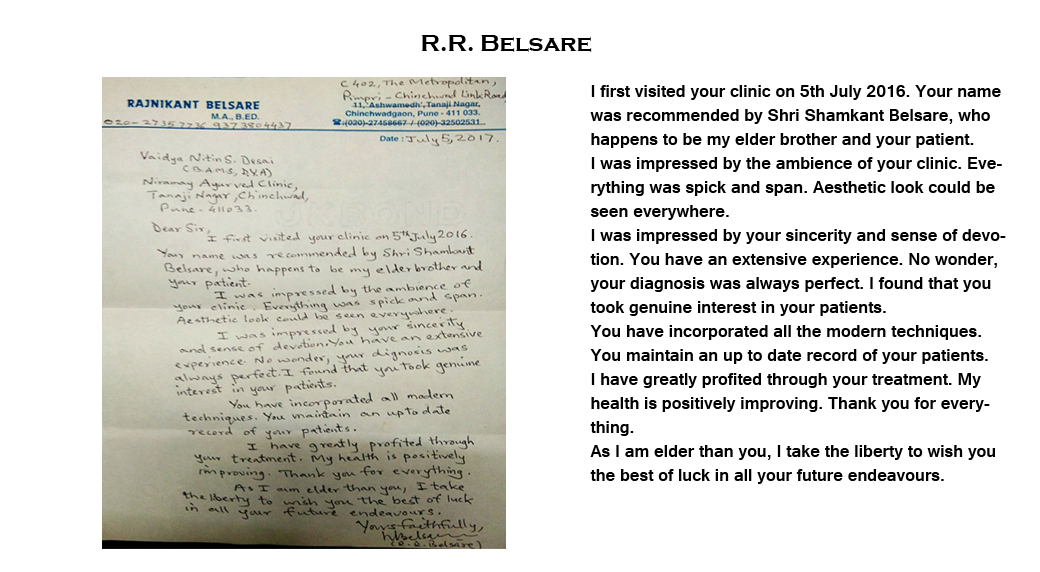 R.R. BELSARE
C 402, The Metropolitan,
Pimpri - Chinchwad Link Road
RAJNIKANT BELSARE
M.A., B.ED.
11, 'Ashwamedh', Tanaji Nagar,
Chinchwadgaon, Pune - 411 033.
020-27357736 9373804437
☎:(020)-27458667 / (020)-32502531
Date : July 5, 2017.
Vaidya Nitin S. Desai
(B.A.M.S, DYA)
Niramay Ayurved Clinic,
Tanaji Nagar, Chinchwad,
Pune - 411033.
Dear Sir,
I first visited your clinic on 5th July 2016.
Your name was recommended by Shri Shamkant
Belsare, who happens to be my elder brother and
your patient.
I was impressed by the ambience of
your clinic. Everything was spick and span.
Aesthetic look could be seen everywhere.
I was impressed by your sincerity
and sense of devotion. You have an extensive
experience. No wonder, your dignosis was
always perfect. I found that you took genuine
interest in your patients.
You have incorporated all modern
techniques. You maintain an upto date
record of your patients.
I have greatly profited through
your treatment. My health is positively
improving. Thank you for everything.
As I am elder than you, I take
the liberty to wish you the best of luck
in all your future endeavours.
Yours faithfully,
(R.R. Belsare)
I first visited your clinic on 5th July 2016. Your name
was recommended by Shri Shamkant Belsare, who
happens to be my elder brother and your patient.
I was impressed by the ambience of your clinic. Eve-
rything was spick and span. Aesthetic look could be
seen everywhere.
I was impressed by your sincerity and sense of devo-
tion. You have an extensive experience. No wonder,
your diagnosis was always perfect. I found that you
took genuine interest in your patients.
You have incorporated all the modern techniques.
You maintain an up to date record of your patients.
I have greatly profited through your treatment. My
health is positively improving. Thank you for every-
thing.
As I am elder than you, I take the liberty to wish you
the best of luck in all your future endeavours.